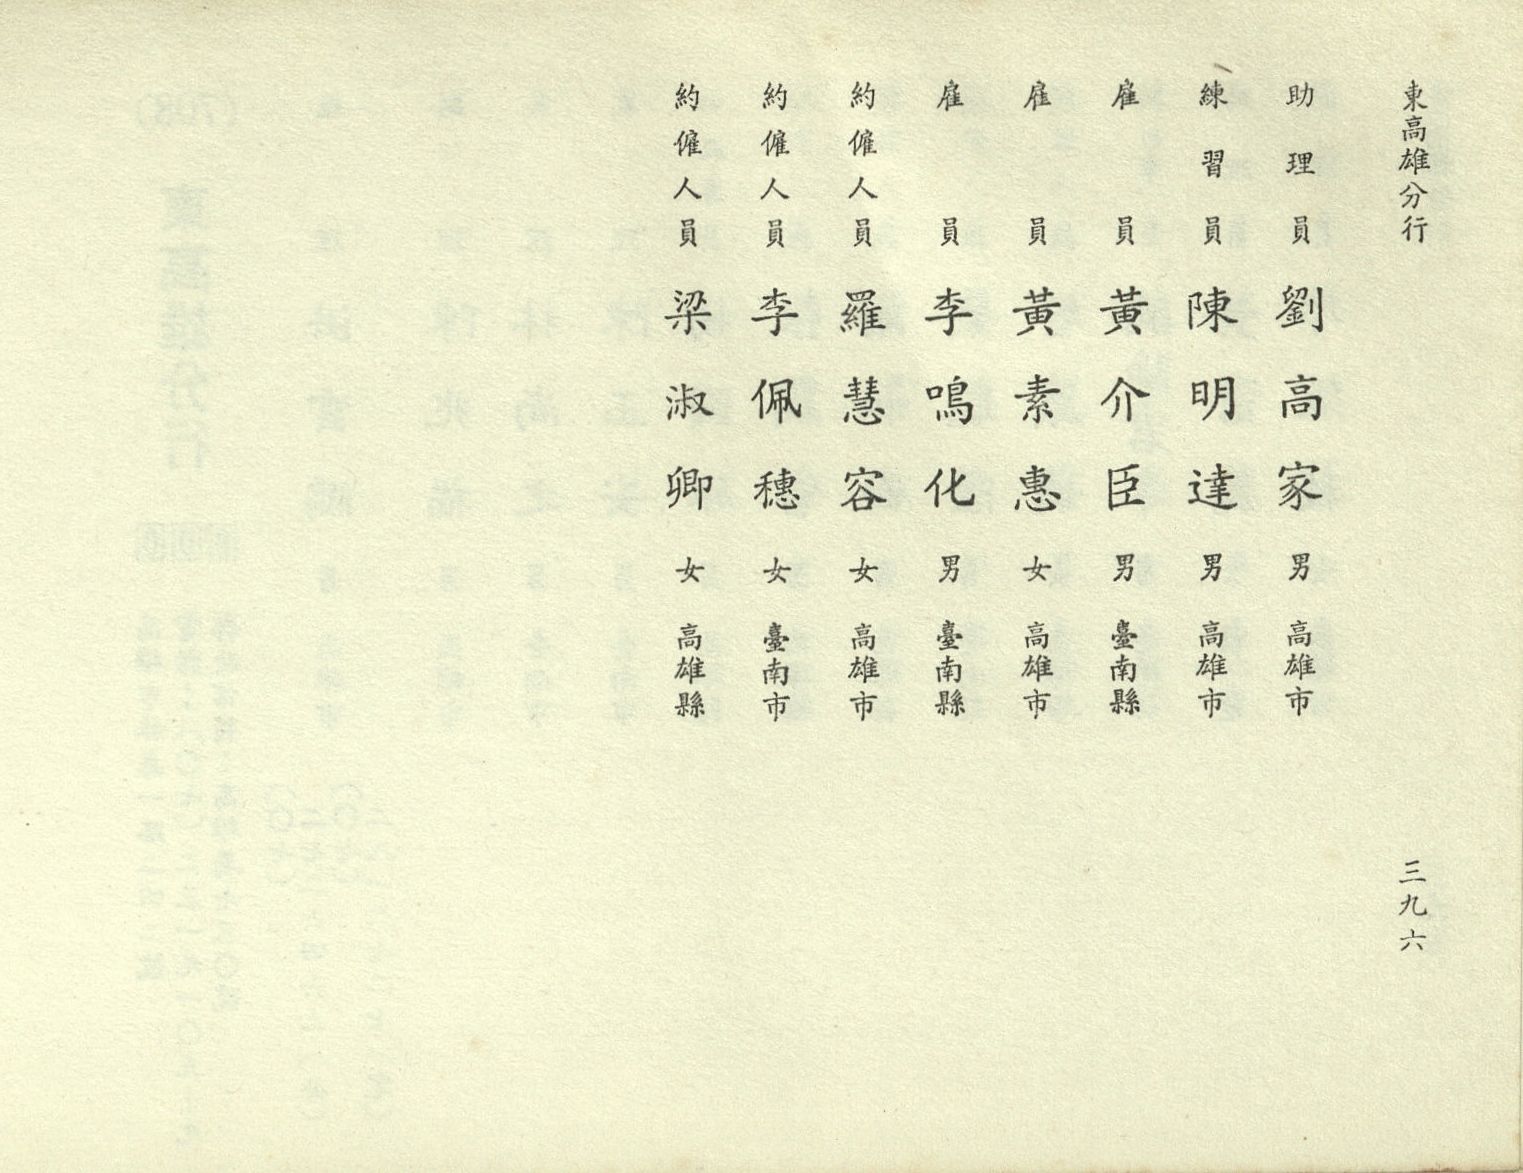 東高雄分行
三九六
助理員 劉高家 男 高雄市
練習員 陳明達 男 高雄市
雇員 黃介臣 男 臺南縣
雇員 黃素惠 女 高雄市
雇員 李鳴化 男 臺南縣
約僱人員 羅慧容 女 高雄市
約僱人員 李佩穗 女 臺南市
約僱人員 梁淑卿 女 高雄縣